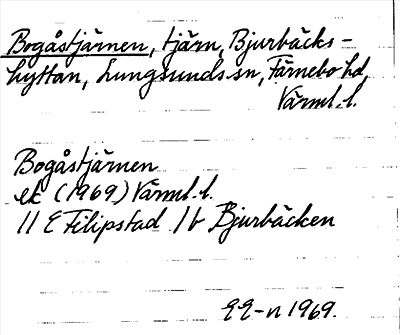 Bogåstjärnen, tjärn, Bjurbäcks-
hyttan, Lungsunds sn, Färnebo hd,
Värml. l.
Bogåstjärnen
ek (1969) Värml. l.
11 E Filipstad 1 b Bjurbäcken
1969.